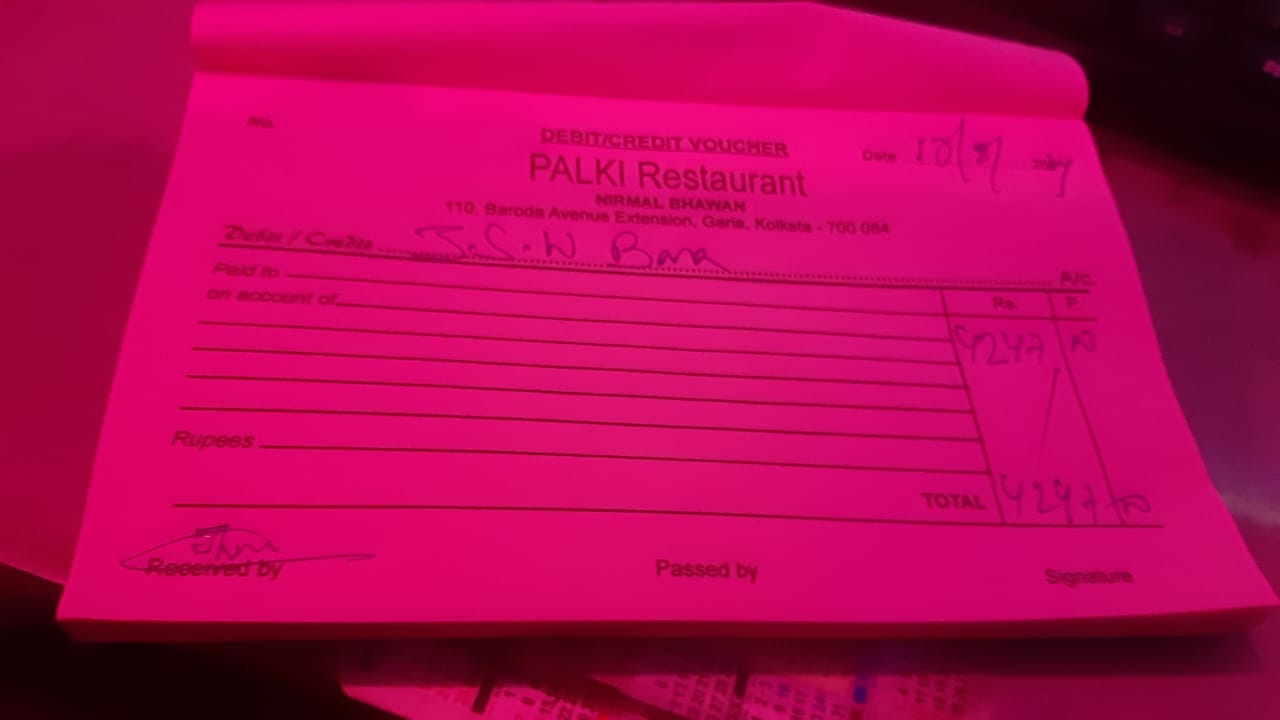 No.
DEBIT/CREDIT VOUCHER
Date 10/8/
PALKI Restaurant
NIRMAL BHAWAN
110, Baroda Avenue Extension, Garia, Kolkata - 700 084
Debit / Credit J.S.W Bara A/c.
Paid to
on account of
Rs. P.
4247 00
Rupees
TOTAL 4247 00
Received by Passed by Signature